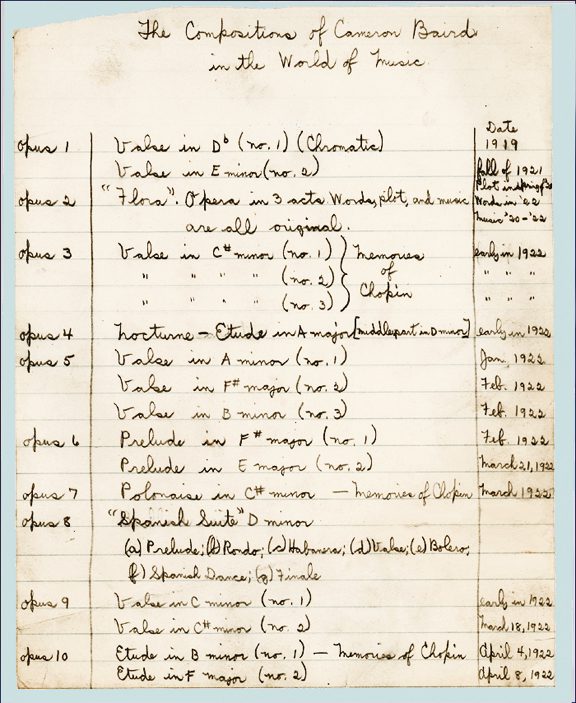 The Compositions of Cameron Baird
in the World of Music.
Date
opus 1 Valse in D♭ (no. 1) (Chromatic) 1919
Valse in E minor (no. 2) fall of 1921
opus 2 "Flora". Opera in 3 acts Words, plot, and music Plot in spring Words in '22
are all original. Music '20-'22
opus 3 Valse in C# minor (no. 1) } Memories early in 1922
" " " " (no. 2) of " " "
" " " " (no. 3) Chopin " " "
opus 4 Nocturne - Etude in A major [middle part in D minor] early in 1922
opus 5 Valse in A minor (no. 1) Jan. 1922
Valse in F# major (no. 2) Feb. 1922
Valse in B minor (no. 3) Feb. 1922
opus 6 Prelude in F# major (no. 1) Feb. 1922
Prelude in E major (no. 2) March 21, 1922
opus 7 Polonaise in C# minor - Memories of Chopin March 1922
opus 8 "Spanish Suite" D minor
(a) Prelude; (b) Rondo; (c) Habanera; (d) Valse; (e) Bolero;
(f) Spanish Dance; (g) Finale
opus 9 Valse in C minor (no. 1) early in 1922
Valse in C# minor (no. 2) March 18, 1922
opus 10 Etude in B minor (no. 1) - Memories of Chopin April 4, 1922
Etude in F major (no. 2) April 8, 1922